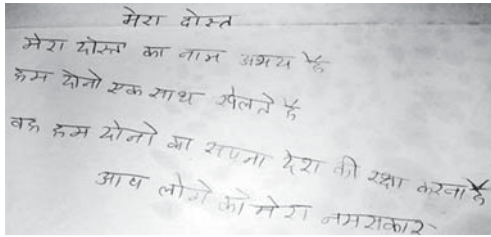 मेरा दोस्त
मेरा दोस्त का नाम अभय है
हम दोनो एक साथ खेलते है
वह हम दोनो का सपना देश की रक्षा करना है
आप लोगे को मेरा नमसकार